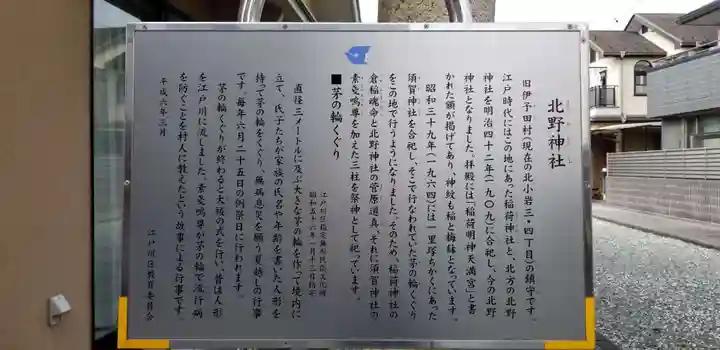 北野神社
旧伊予田村(現在の北小岩三・四丁目)の鎮守です。
江戸時代にはこの地にあった稲荷神社と、北方の北野
神社を明治四十二年(一九〇九)に合祀し、今の北野
神社となりました。拝殿には「稲荷明神天満宮」と書
かれた額が掲げてあり、神紋も稲と梅鉢となっています。
昭和三十九年(一九六四)には一里塚ちかくにあった
須賀神社を合祀し、そこで行なわれていた茅の輪くぐり
をこの地で行うようになりました。そのため、稲荷神社の
倉稲魂命と北野神社の菅原道真、それに須賀神社の
素戔嗚尊を加えた三柱を祭神として祀っています。
■茅の輪くぐり
江戸川区指定無形民俗文化財
昭和五十六年一月十二日指定
直径三メートルに及ぶ大きな茅の輪を作って境内に
立て、氏子たちが家族の氏名や年齢を書いた人形を
持って茅の輪をくぐり、無病息災を願う夏越しの行事
です。毎年六月二十五日の例祭日に行われます。
茅の輪くぐりが終わると大祓の式を行い、昔は人形
を江戸川に流しました。素戔嗚尊が茅の輪で流行病
を防ぐことを村人に教えたという故事による行事です。
平成六年三月
江戸川区教育委員会